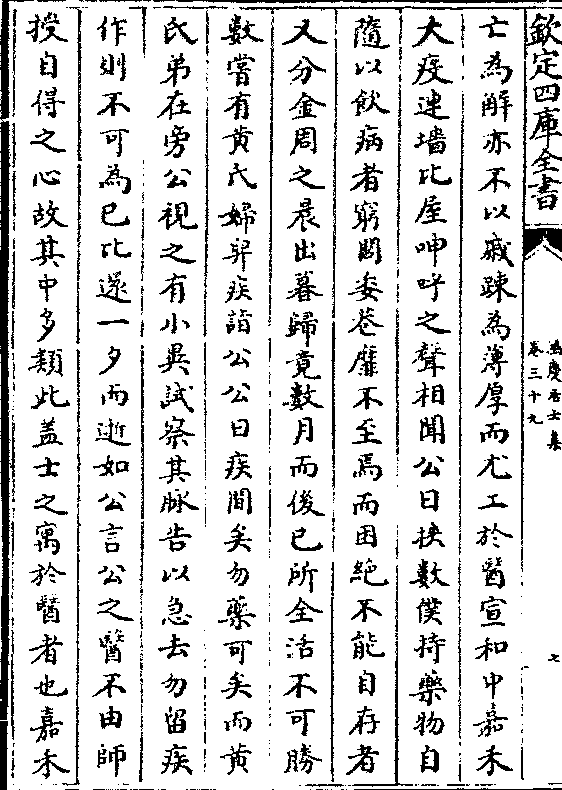 欽定四庫全書
鴻慶居士集
卷三十九
七
亡為解亦不以戚踈為薄厚而尤工於醫宣和中嘉禾
大疫連墻比屋呻吟之聲相聞公日挾數僕持藥物自
隨以飲病者窮閻委巷靡不至焉而困絶不能自存者
又分金周之晨出暮歸竟數月而後已所全活不可勝
數嘗有黄氏婦舁疾詣公公曰疾間矣勿藥可矣而黄
氏弟在旁公視之有小異試察其脉告以急去勿留疾
作則不可為已比還一夕而逝如公言公之醫不由師
授自得之心故其中多類此盖士之寓於醫者也嘉禾